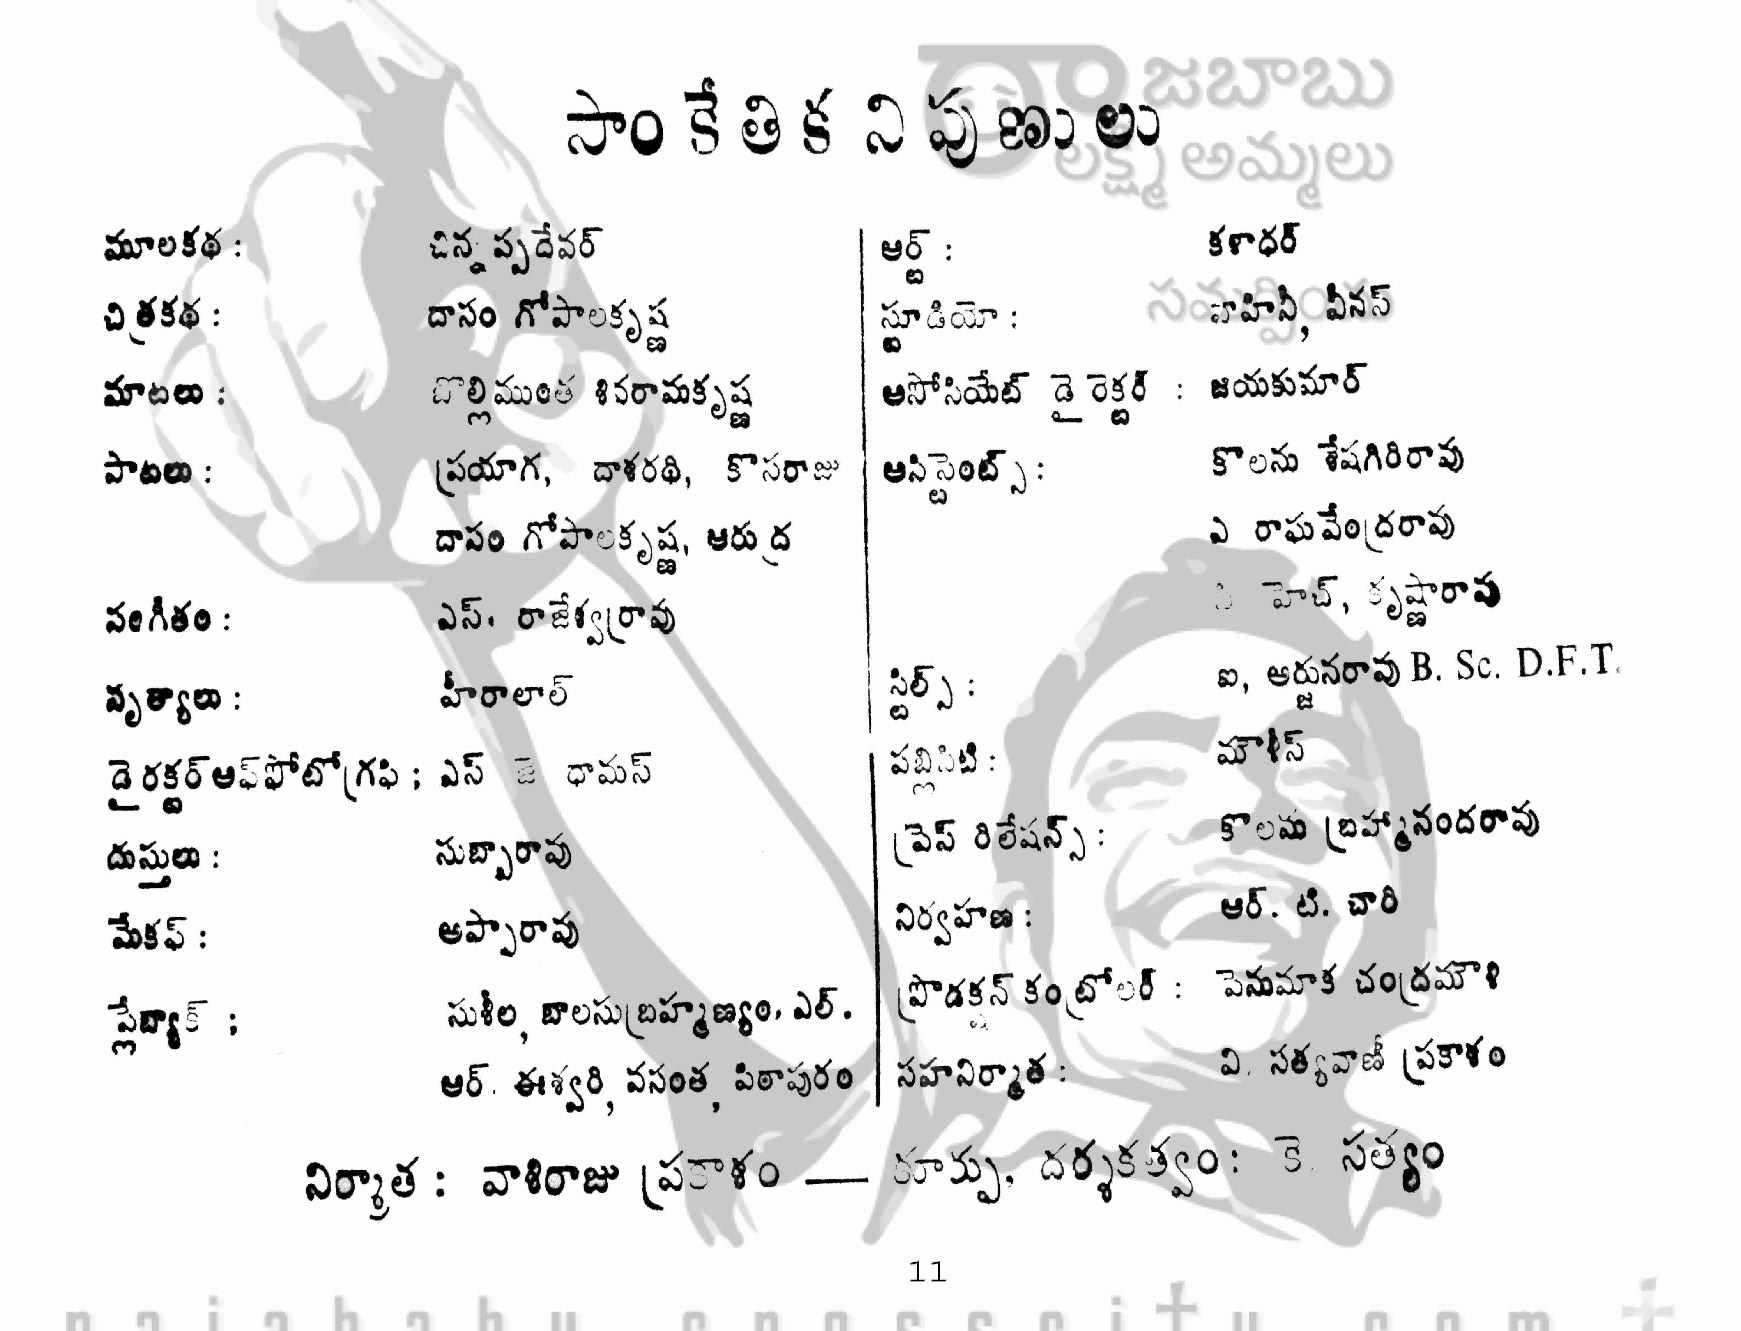 రాజబాబు
లక్ష్మీ అమ్మలు
సాంకేతిక నిపుణులు
మూలకథ : చిన్నప్పదేవర్
చిత్రకథ : దాసం గోపాలకృష్ణ
మాటలు : బొల్లిముంత శివరామకృష్ణ
పాటలు : ప్రయాగ, దాశరథి, కొసరాజు
దాసం గోపాలకృష్ణ, ఆరుద్ర
సంగీతం : ఎస్. రాజేశ్వరరావు
నృత్యాలు : హీరాలాల్
డైరక్టర్ ఆఫ్ ఫోటోగ్రఫి ; ఎస్ జె థామస్
దుస్తులు : సుబ్బారావు
మేకప్ : అప్పారావు
ప్లేబ్యాక్ ; సుశీల, బాలసుబ్రహ్మణ్యం, ఎల్.
ఆర్. ఈశ్వరి, వసంత, పిఠాపురం
ఆర్ట్ : కళాధర్
సమర్పించు
స్టూడియో : వాహినీ, వీనస్
అసోసియేట్ డైరెక్టర్ : జయకుమార్
అసిస్టెంట్స్ : కొలను శేషగిరిరావు
ఎ రాఘవేంద్రరావు
హెచ్, కృష్ణారావు
స్టిల్స్ : ఐ, అర్జునరావు B. Sc. D.F.T.
పబ్లిసిటి : మౌళీస్
ప్రెస్ రిలేషన్స్ : కొలను బ్రహ్మానందరావు
నిర్వహణ : ఆర్. టి. చారి
ప్రొడక్షన్ కంట్రోలర్ : పెనుమాక చంద్రమౌళి
సహనిర్మాత : వి. సత్యవాణీ ప్రకాశం
నిర్మాత : వాశిరాజు ప్రకాశం — కూర్పు, దర్శకత్వం : కె. సత్యం
11